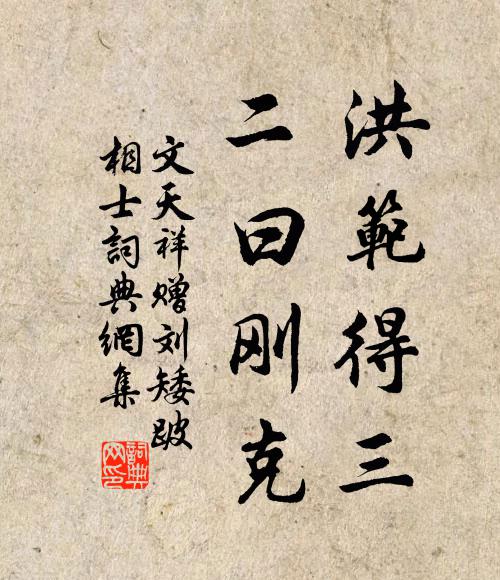 洪範得三
二曰刚克
文天祥赠刘矮跛
相士詞典網集
詞典
网印